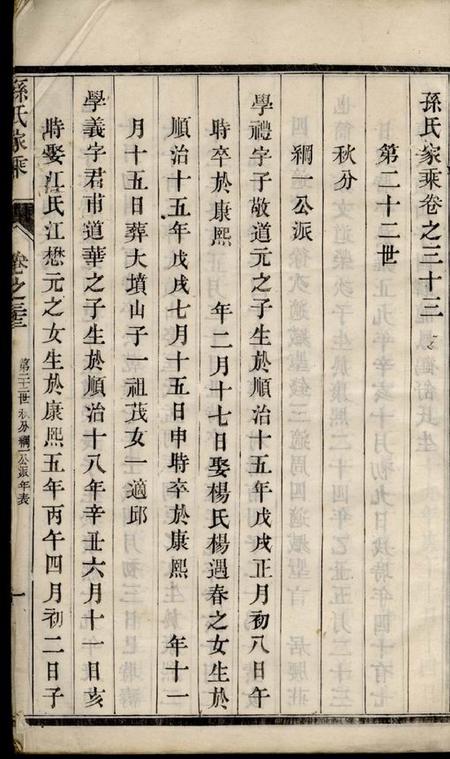 孫氏家乘卷之三十三
第二十二世
秋分
綱一公派
學禮字子敬道元之子生於順治十五年戊戌正月初八日午
時卒於康熙　年二月十七日娶楊氏楊遇春之女生於
順治十五年戊戌七月十五日申時卒於康熙　年十一
月十五日葬大墳山子一祖茂女一適邱
學義字君甫道華之子生於順治十八年辛丑六月十一日亥
時娶江氏江懋元之女生於康熙五年丙午四月初二日子
孫氏家乘
卷之三十三
第二十二世秋分綱一公派年表
一